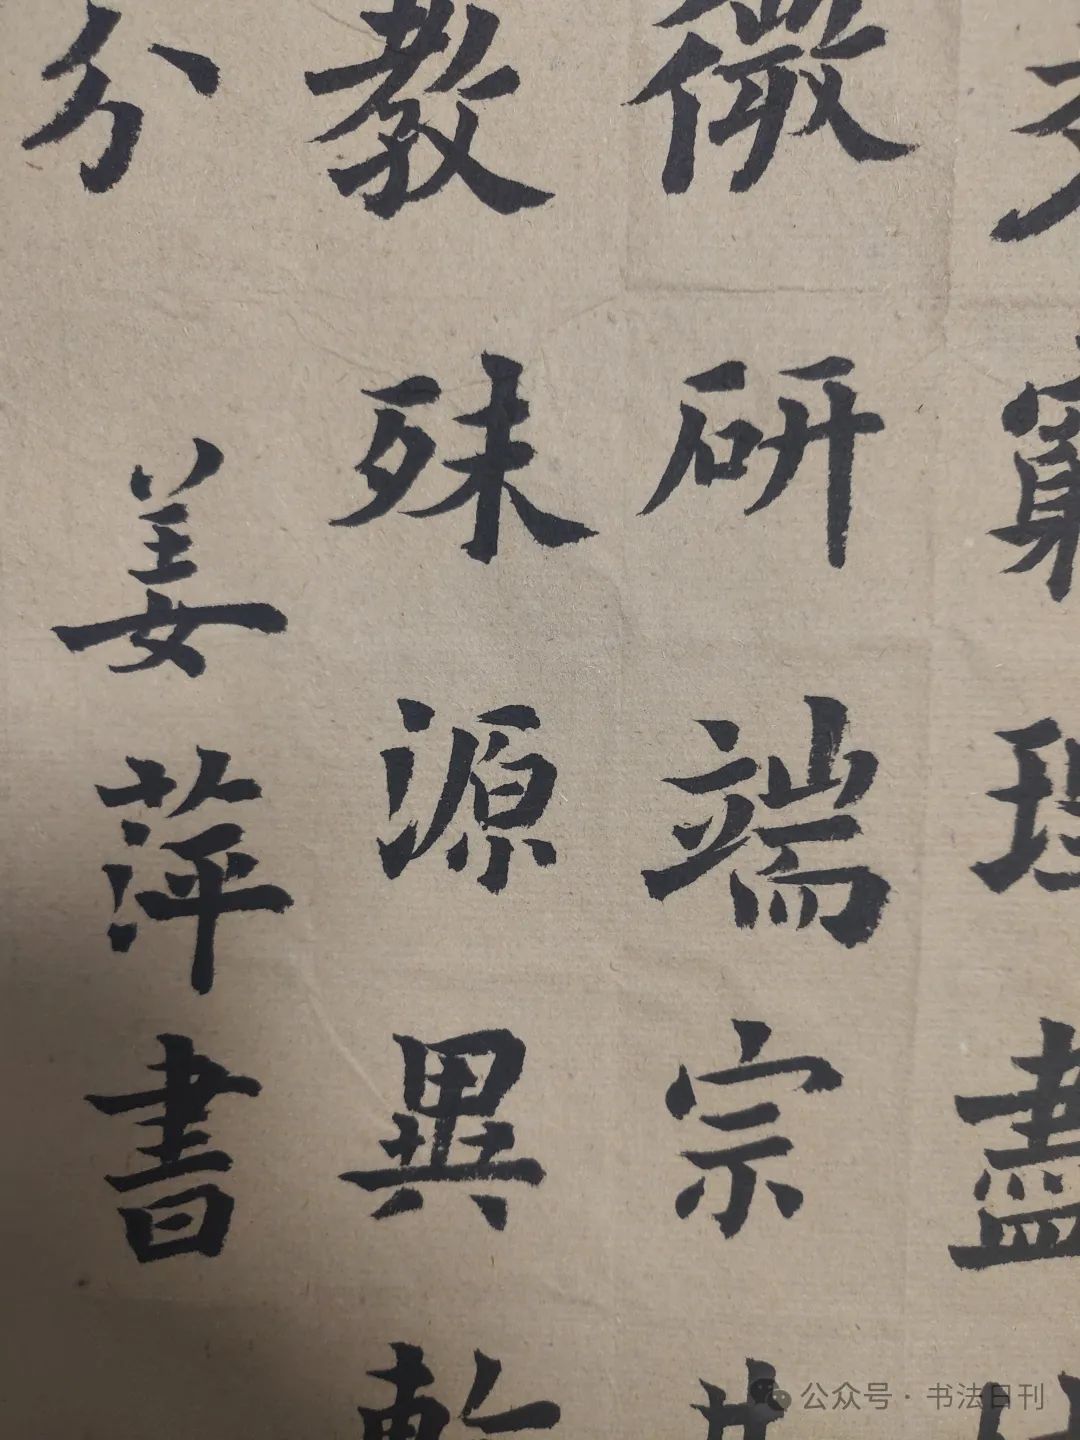 窮理盡
微研端宗其
教殊源異軫
分
姜萍書
公众号·书法日刊